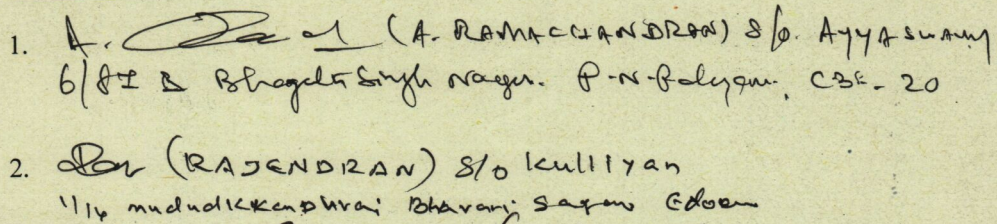 1. A. (A. RAMACHANDRAN) S/o. AYYASWAMY
6/81 B Bhagath Singh Nagar. P-N-Palayam. CBE-20
2. (RAJENDRAN) S/o Kulliyan
1/14 Bhavani Sagar